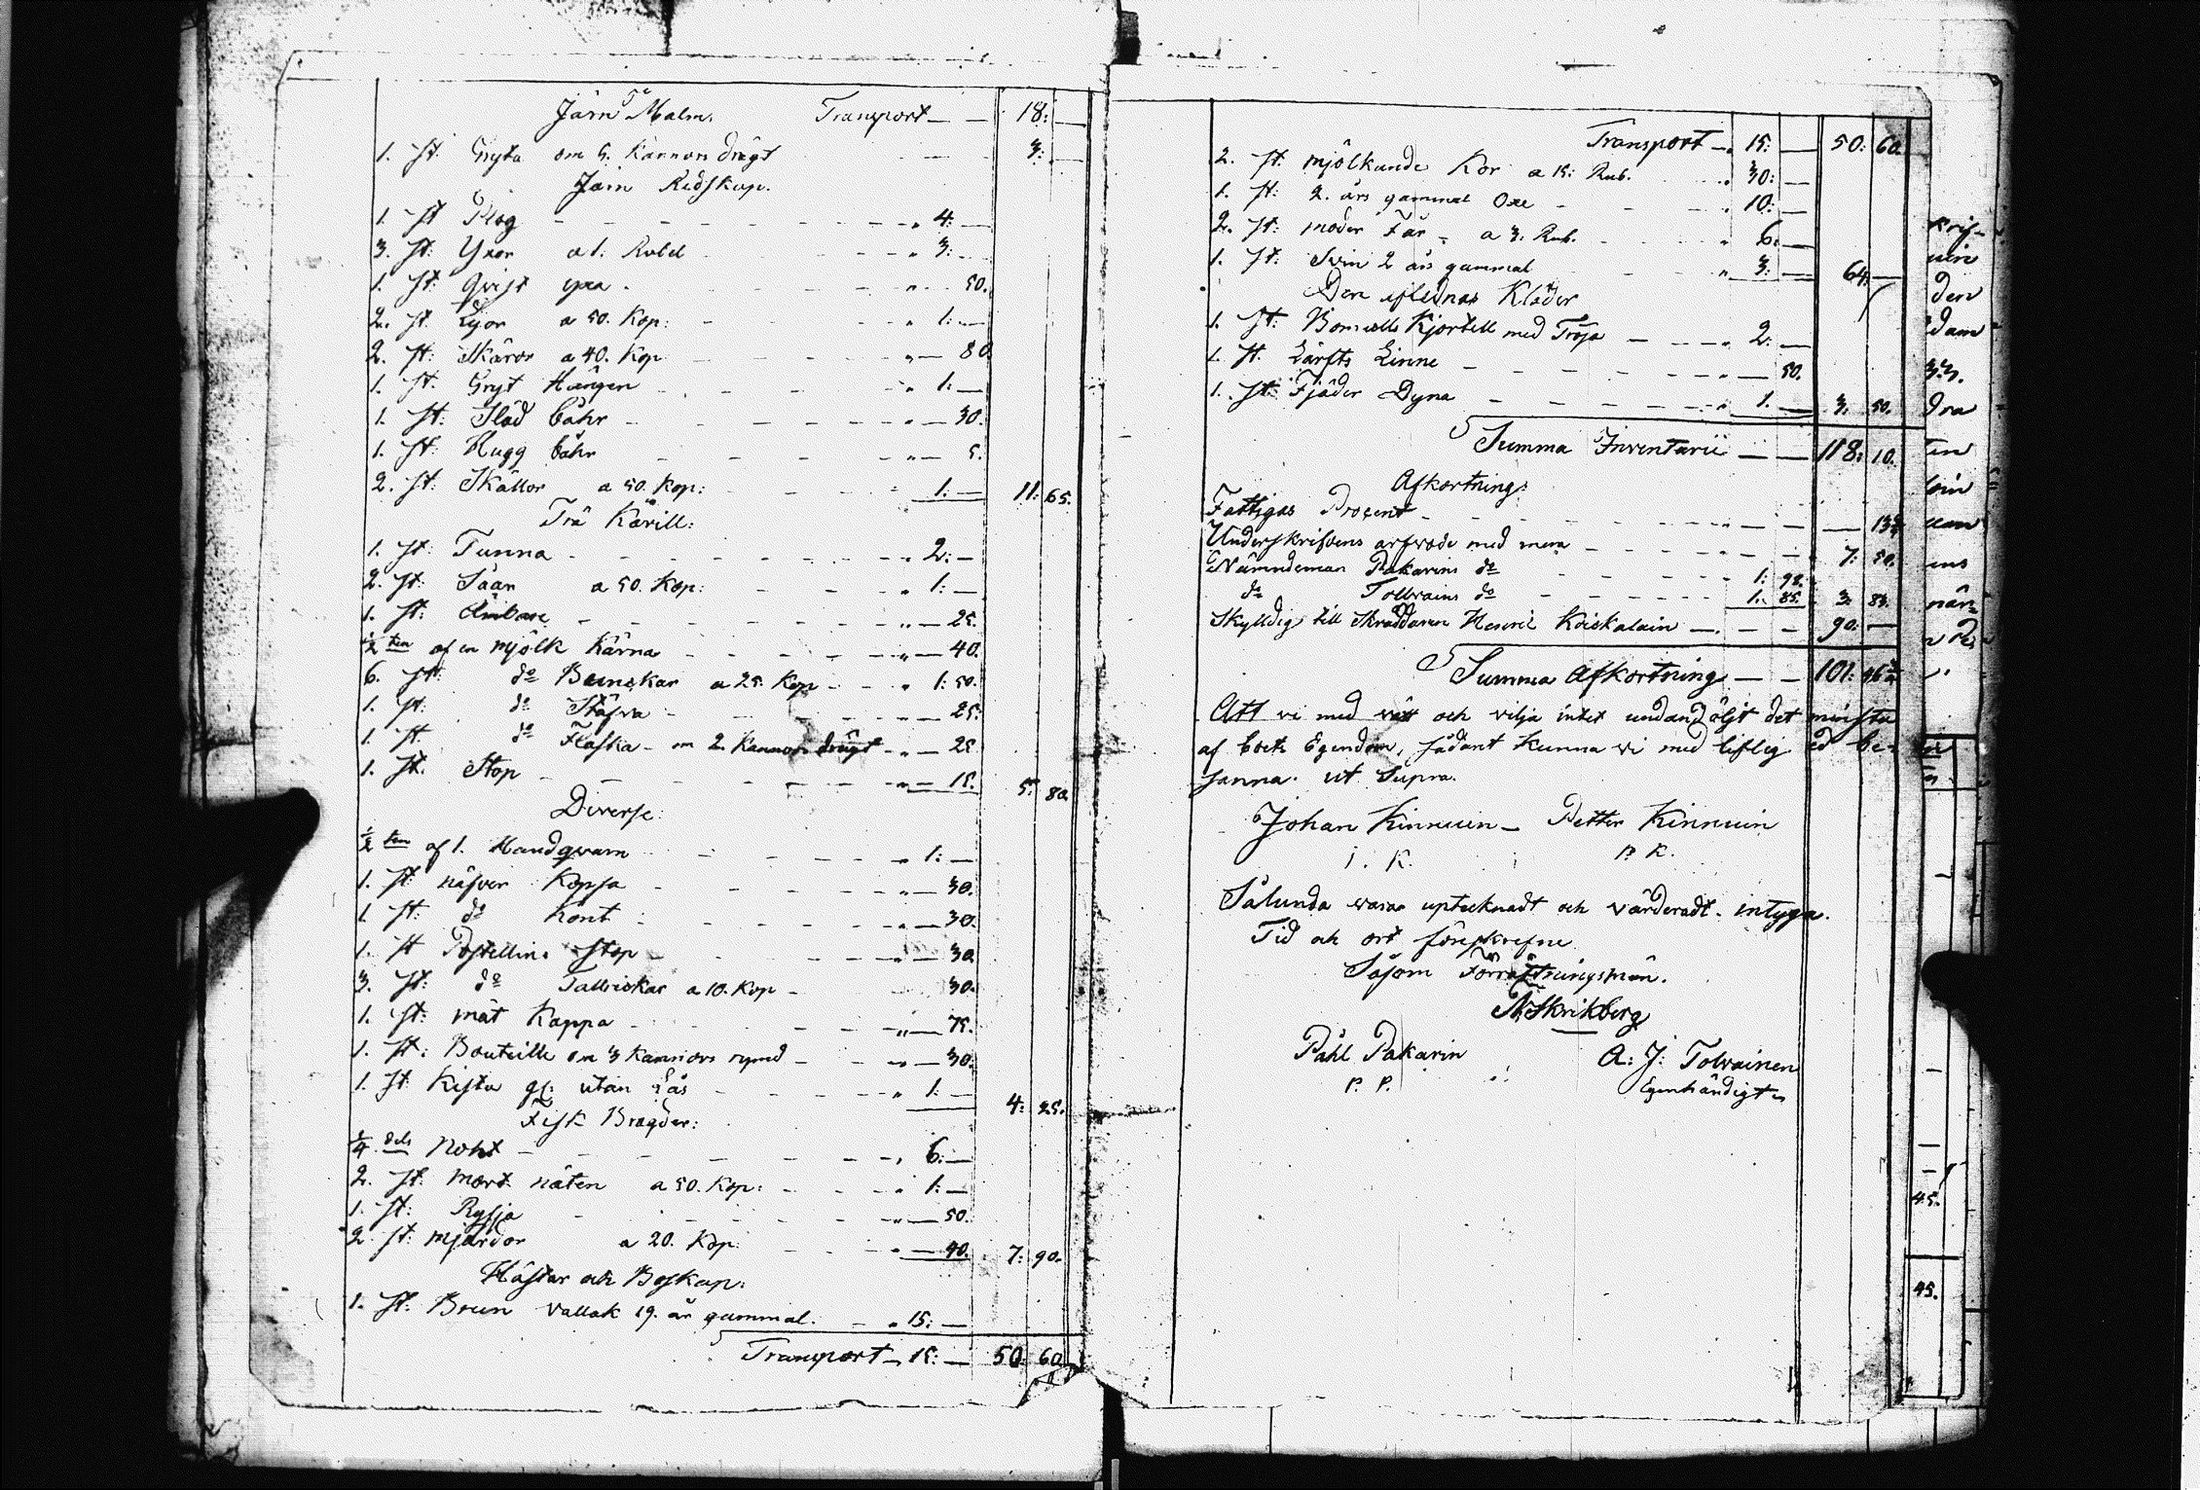 Järn Malm. Transport — — 18: —
1. st. Gryta om 5. Kannors drägt — — 3: —
Järn Redskap.
1. st Plog — — „ 4: —
3. st: Yxor a 1. Rubel — — „ 3: —
1. st: Qvist yxa — — „ 50.
2. st. Lijor a 50. Kop: — „ 1: —
2. st: Skäror a 40. Kop — — „ — 80
1. st. Gryt Hängen — — „ 1: —
1. st: Släd båhr — — „ — 30.
1. st: Hugg båhr — — „ — 5.
2. st: Skällor a 50. Kop: — 1: — 11: 65.
Trä Kärill:
1. st Tunna — — „ 2: —
2. st: Såar a 50. Kop: — — „ 1: —
1. st: Ämbare — — „ — 25.
½ ten af en mjölk Kärna — — „ — 40.
6. st: do Bunckar a 25. Kop — — „ 1: 50.
1. st. do Stäfva — — „ — 25:
1. st. do Flaska — om 2. Kannors drägt — „ — 25
1. st. Stop — — „ — 15. 5: 80
Diverse:
½ ten af 1. Handqvarn — — „ 1: —
1. st näfver Kopsa — — „ — 30.
1. st: do Kont — — „ — 30.
1. st Postellins Stop — — „ — 30
3. st: do Tallrickar a 10. Kop — 30.
1. st: mät Kappa — — „ — 75.
1. st: Bouteille om 3 Kannors rymd — „ — 30.
1. st Kista gl: utan Lås — — „ 1: — 4: 25.
Fisk Bragder:
¼ dels Noht — — „ 6: —
2. st mört näten a 50. Kop: — „ 1: —
1. st: Rysja — — „ — 50.
2. st: mjärdor a 20. Kop: — „ — 40. 7: 90.
Hästar och Boskap:
1. st: Brun vallak 19. år gammal. — „ 15: —
Transport — 15: — 50: 60
Transport — 15: — 50: 60.
2. st. mjölkande Kor a 15: Rub. „ 30: —
1. st: 2. års gammal Oxe — „ 10: —
2. st: moder Får — a 3. Rub. „ 6: —
1. st: Svin 2 års gammal „ 3: — 64: —
Den aflednas Kläder
1. st: Bomulls Kjortell med Tröja — — „ 2: —
1. st. Lärfts Linne — — „ — 50.
1. st: Fjäder Dyna — — „ 1. — 3. 50.
Summa Inventarii — — 118: 10.
Afkortning:
Fattigas Procent — —
Underskrifvens arfwode med mera — — 7: 50.
Nämndeman Pakarins do — — 1: 98.
do Tolwains do — — 1: 85. 3: 83.
Skylldig till Skräddaren Henric Koickalain — — 90: —
Summa Afkortning — — 101:
Att vi med vått och vilja intet undandöljt det minsta
af boets Egendom, sådant kunna vi med liflig ed be-
sanna. ut Supra.
Johan Kinnuin — Petter Kinnuin
J. K. P. K.
Sålunda wara uptecknadt och värderadt. intyga.
Tid och ort föreskrefne
Såsom Förrättningsmän.
N: Skrikberg
Påhl Pakarin A: J: Tolvainen
P. P. Egenhändigt
den
dra
ten
ens
45.
45.